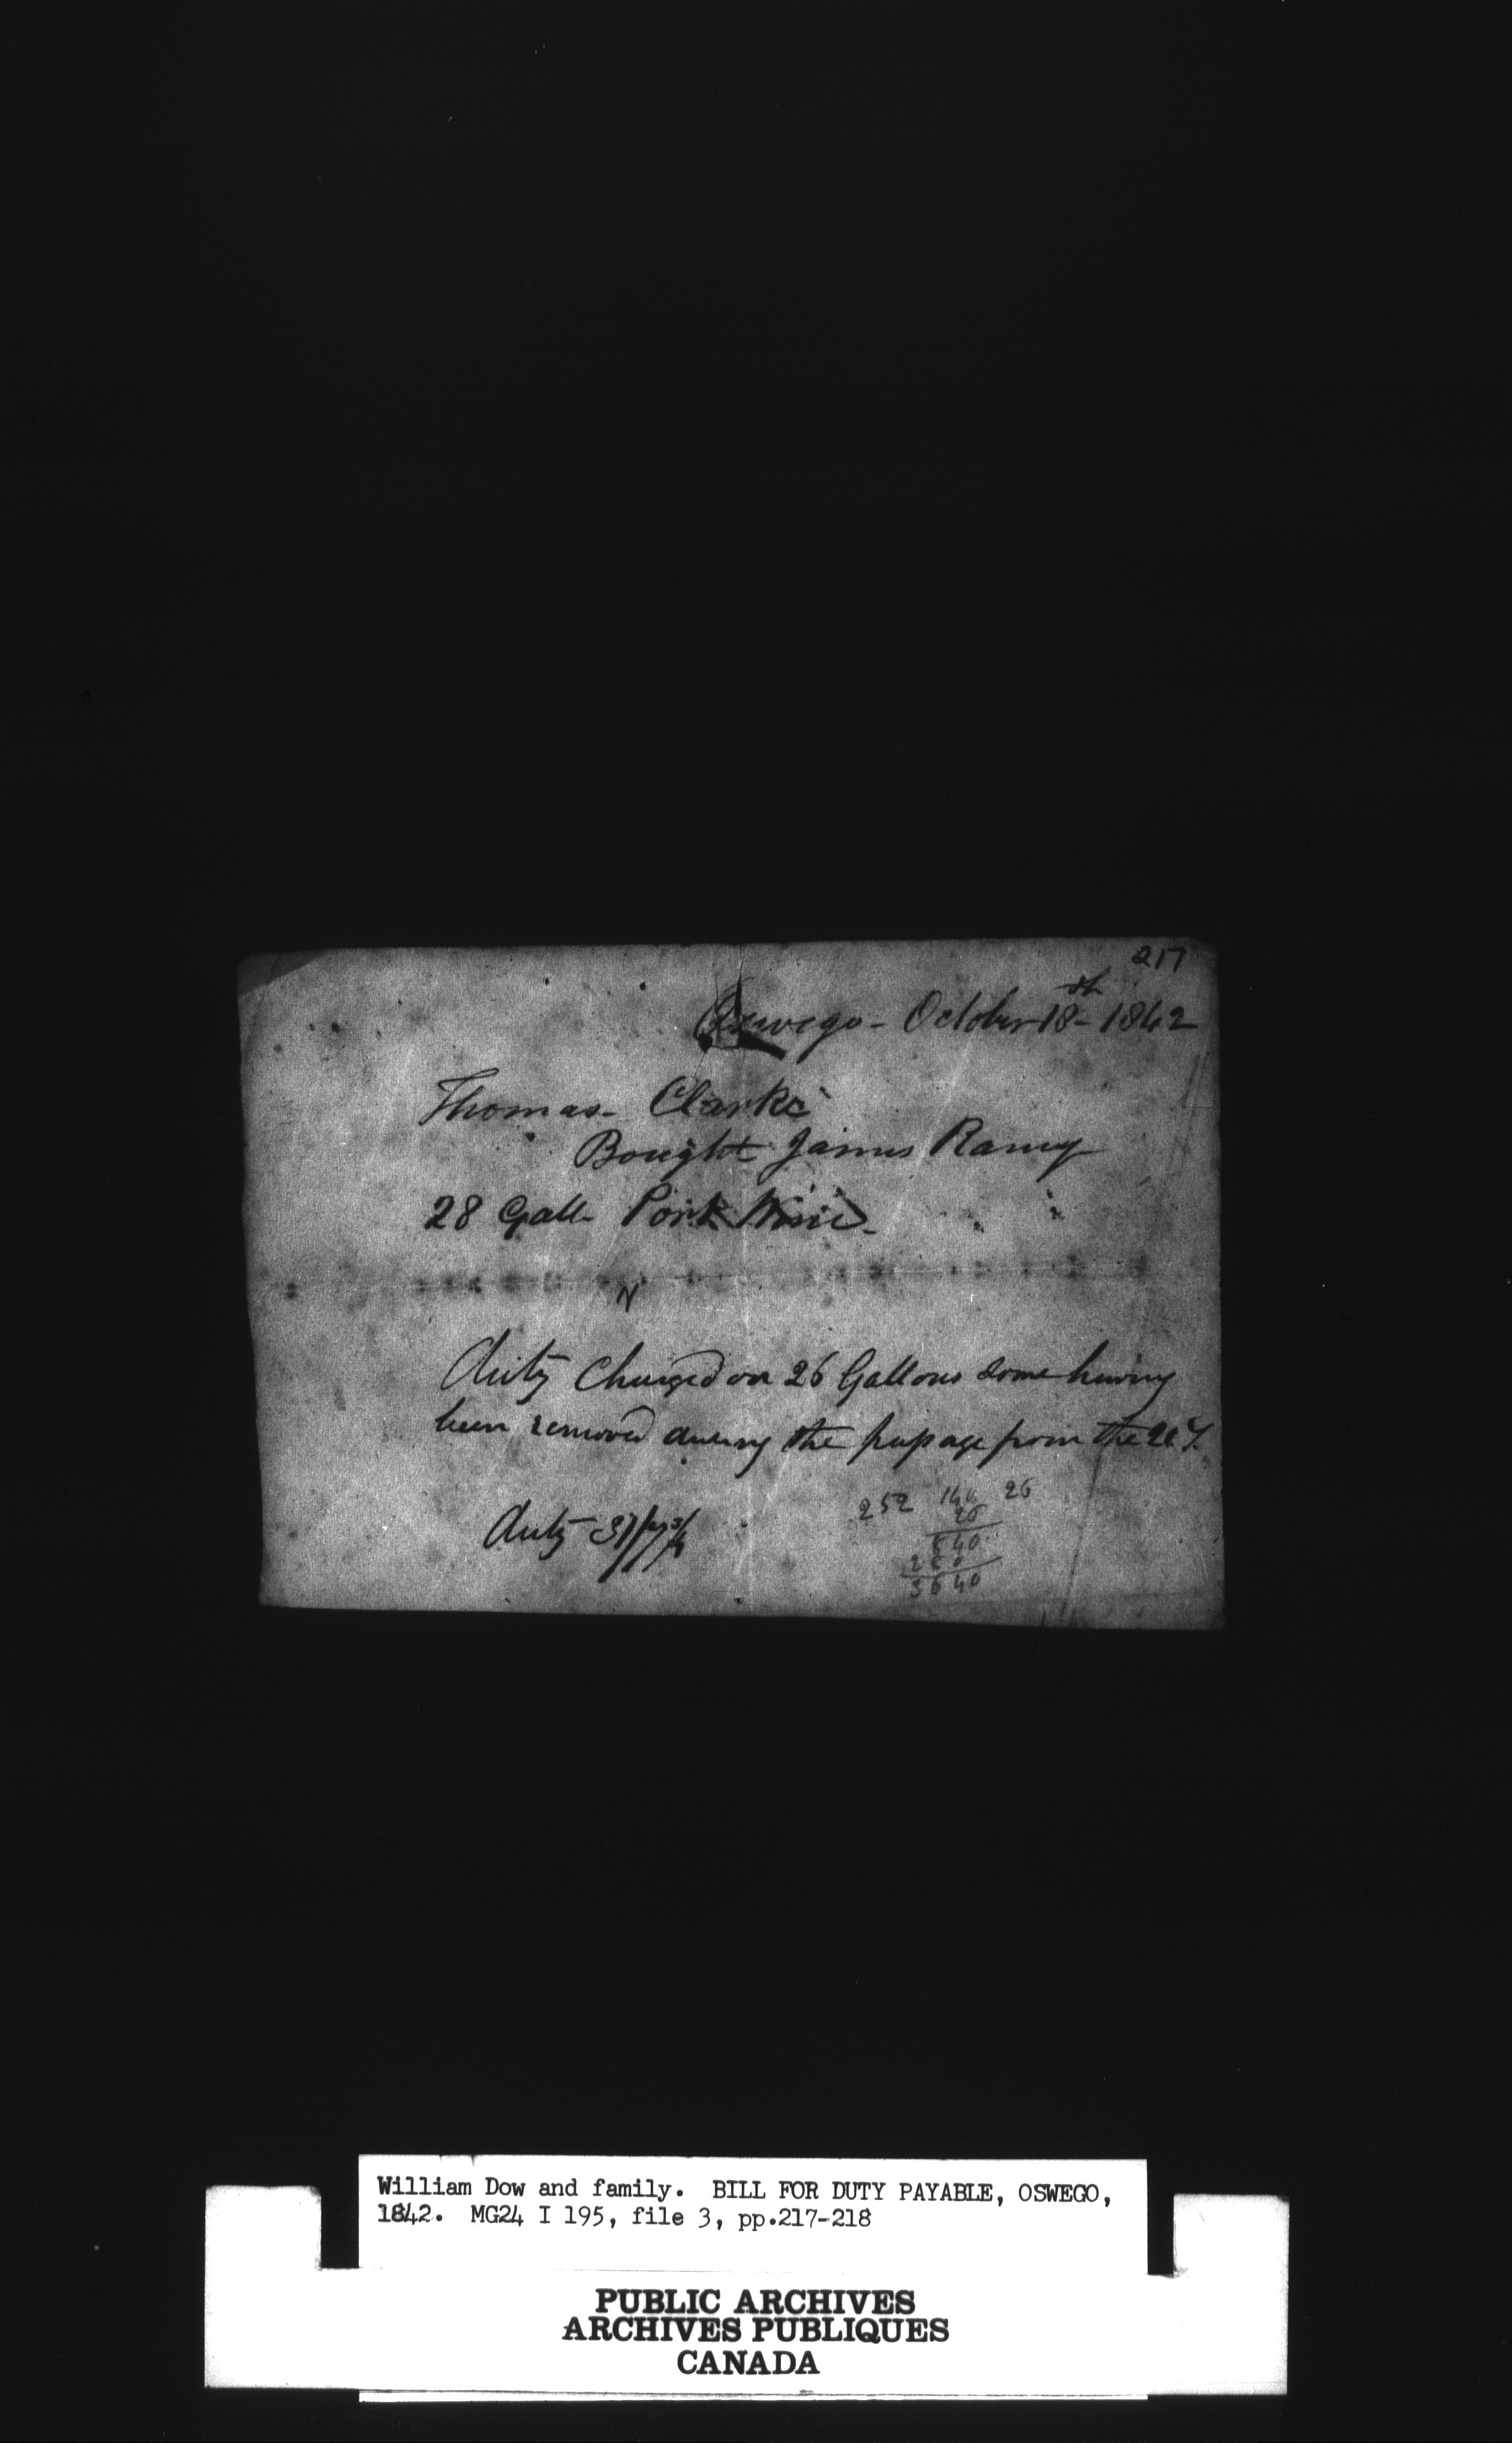 217
Oswego - October 18th - 1842
Thomas Clarke
Bought James Ramy
28 Gall Port Wine
Duty Charged on 26 Gallons some having
been removed during the passage from the U.S.
Duty
252 144 26
26
840
260
3640
William Dow and family. BILL FOR DUTY PAYABLE, OSWEGO,
1842. MG24 I 195, file 3, pp.217-218
PUBLIC ARCHIVES
ARCHIVES PUBLIQUES
CANADA